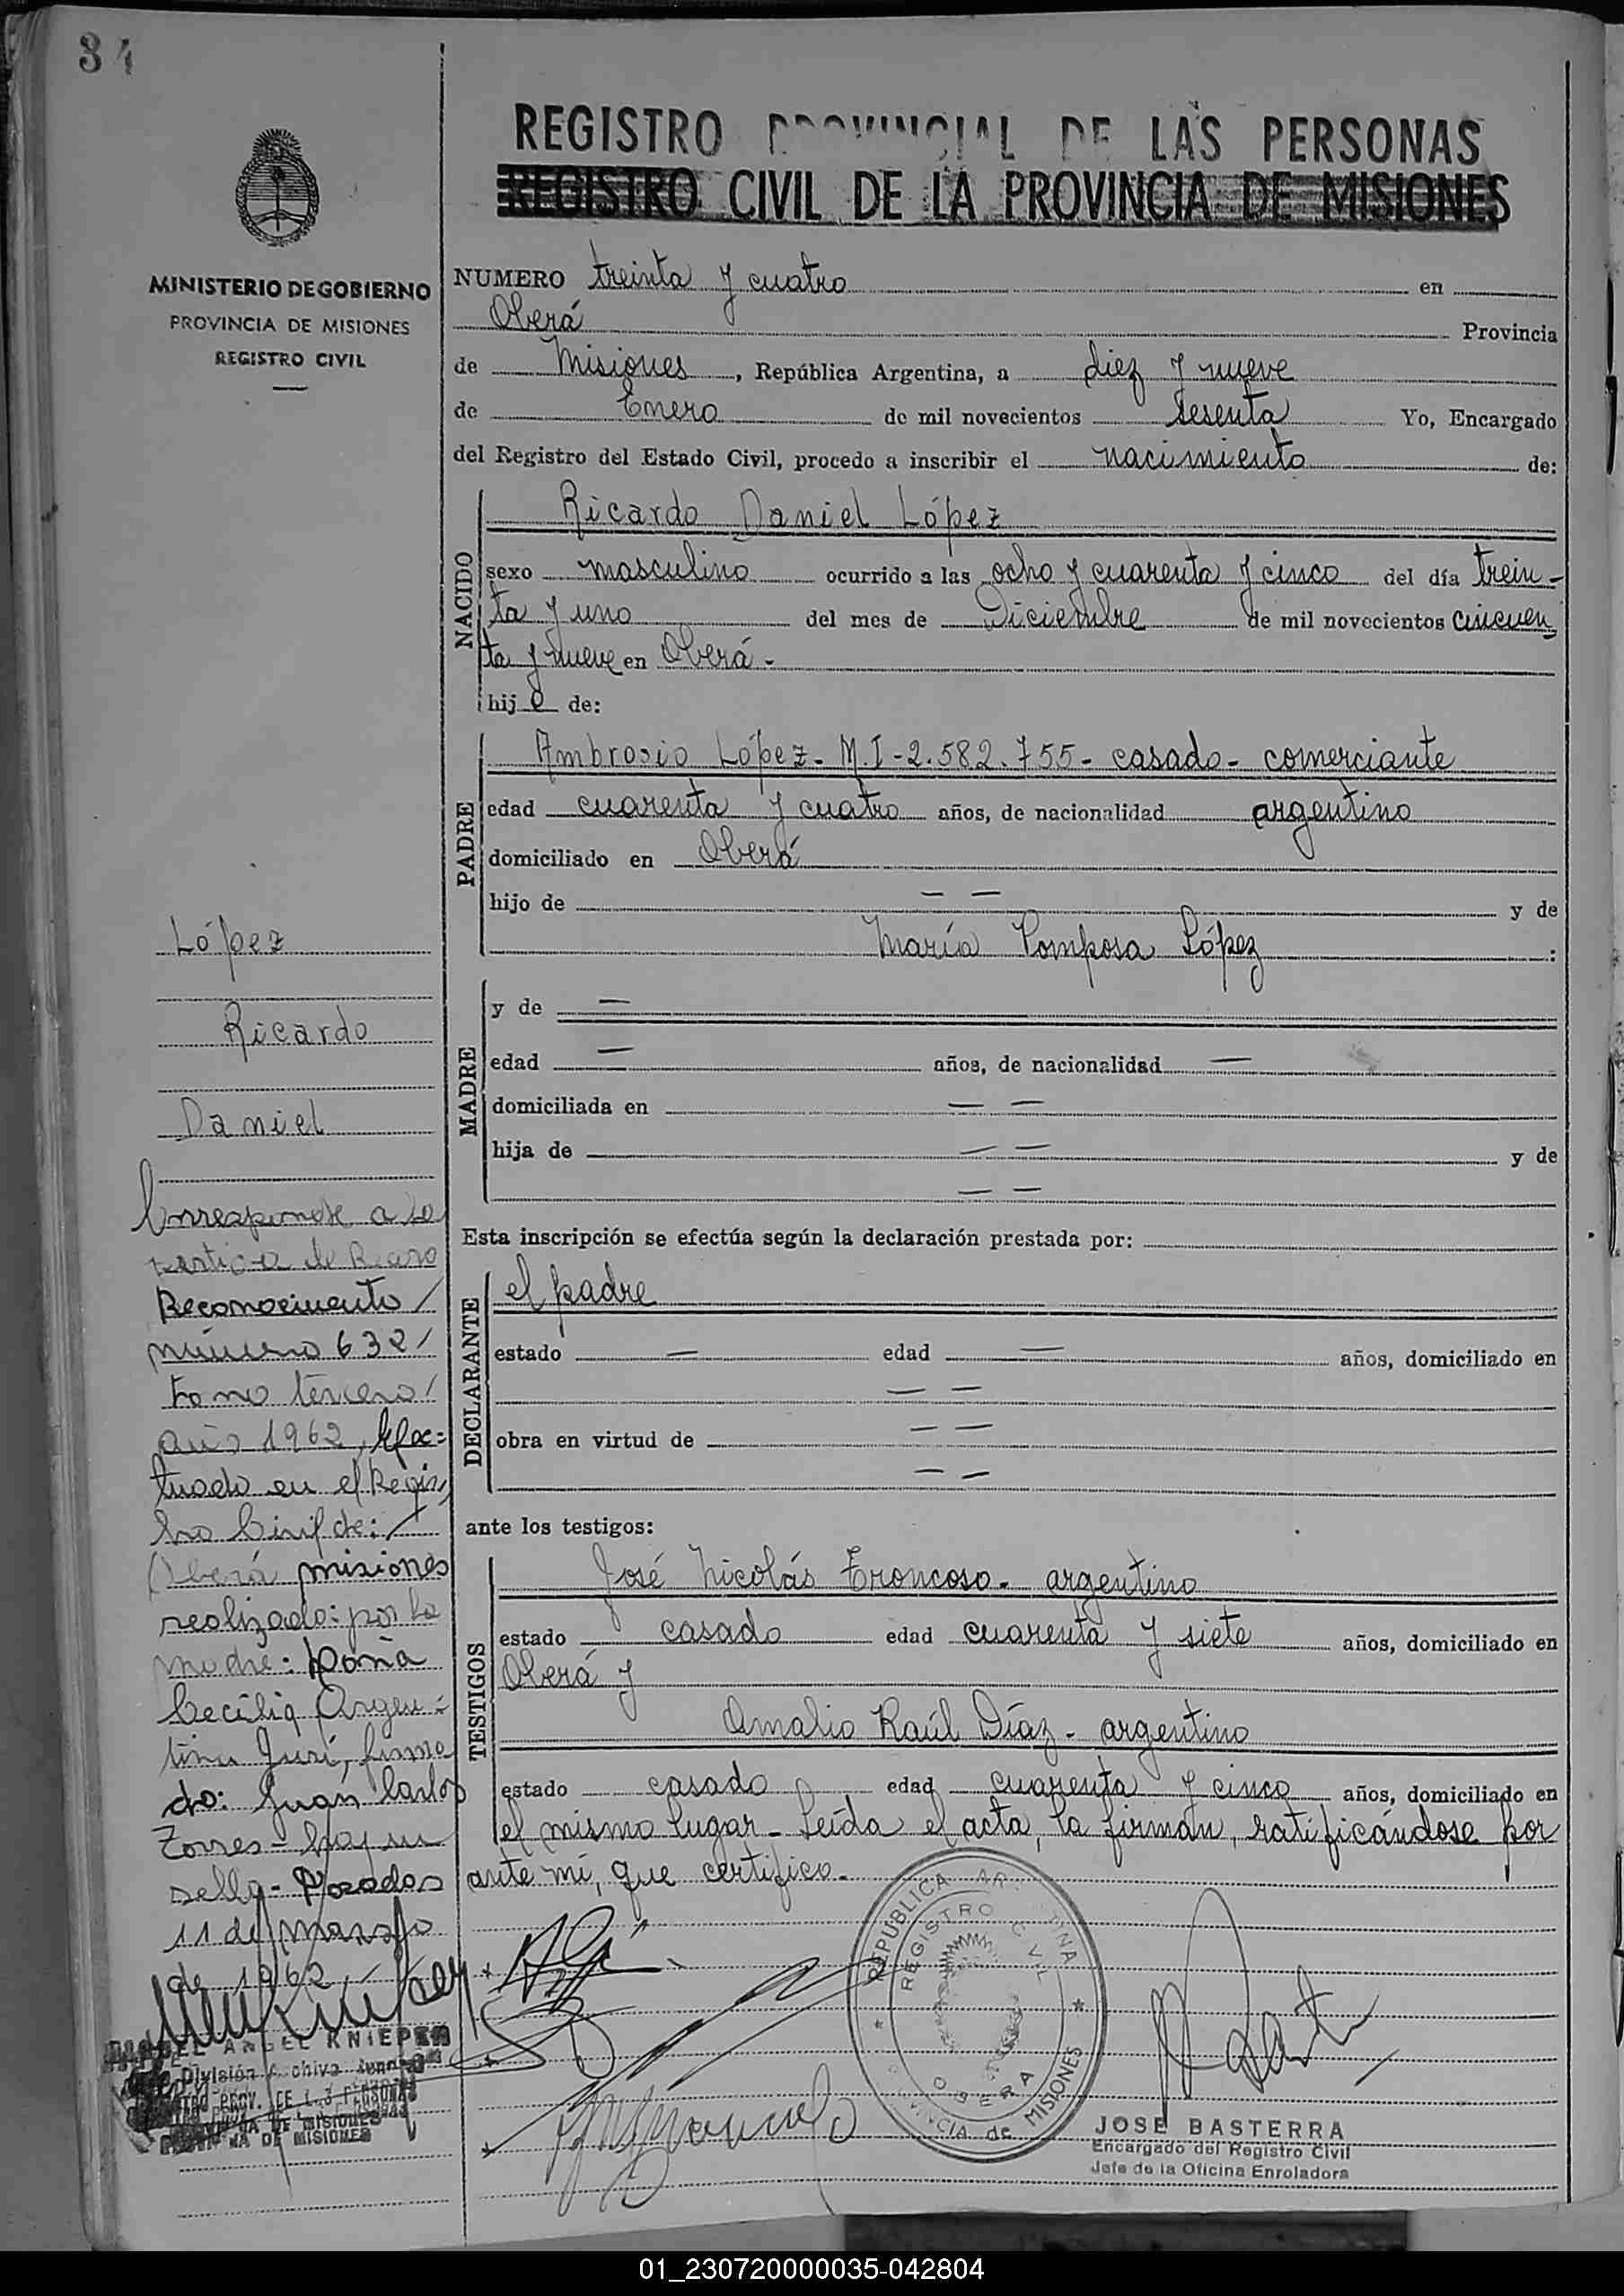 34
REGISTRO PROVINCIAL DE LAS PERSONAS
REGISTRO CIVIL DE LA PROVINCIA DE MISIONES
MINISTERIO DE GOBIERNO
PROVINCIA DE MISIONES
REGISTRO CIVIL
NUMERO treinta y cuatro en
Oberá Provincia
de Misiones, República Argentina, a diez y nueve
de Enero de mil novecientos sesenta Yo, Encargado
del Registro del Estado Civil, procedo a inscribir el nacimiento de:
NACIDO
Ricardo Daniel López
sexo masculino ocurrido a las ocho y cuarenta y cinco del día trein-
ta y uno del mes de Diciembre de mil novecientos cincuen
ta y nueve en Oberá-
hijo de:
PADRE
Ambrosio López- M.I-2.582.755- casado- comerciante
edad cuarenta y cuatro años, de nacionalidad argentino
domiciliado en Oberá
hijo de — — y de
María Pomposa López :
MADRE
y de —
edad — años, de nacionalidad —
domiciliada en — —
hija de — — y de
— —
Esta inscripción se efectúa según la declaración prestada por:
DECLARANTE
el padre
estado — edad — años, domiciliado en
— —
obra en virtud de — —
— —
ante los testigos:
TESTIGOS
José Nicolás Troncoso- argentino
estado casado edad cuarenta y siete años, domiciliado en
Oberá y
Amalio Raúl Díaz- argentino
estado casado edad cuarenta y cinco años, domiciliado en
el mismo lugar- Leída el acta, la firman, ratificándose por
ante mí, que certifico.-
López
Ricardo
Daniel
Corresponde a la
Reconocimiento /
número 632/
tomo tercero/
año 1962, efec=
tuado en el Regis
tro Civil de:
Oberá misiones
realizado: por la
madre: Doña
Cecilia Argen=
tina Juri, firma
do: Juan Carlos
Torres- hay un
sello- Posadas
11 de marzo
de 1962
ANGEL KNIEPER
División Archivo
PROV. DE LAS PERSONAS
DE MISIONES
REPUBLICA ARGENTINA
REGISTRO CIVIL
OBERA
PROVINCIA de MISIONES
JOSE BASTERRA
Encargado del Registro Civil
Jefe de la Oficina Enroladora
01_230720000035-042804